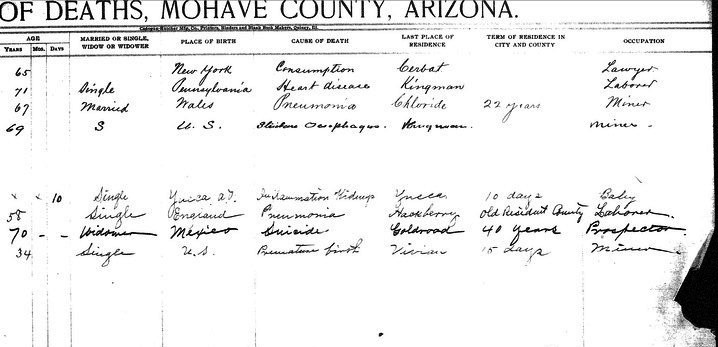 OF DEATHS, MOHAVE COUNTY, ARIZONA.
AGE MARRIED OR SINGLE, WIDOW OR WIDOWER PLACE OF BIRTH CAUSE OF DEATH LAST PLACE OF RESIDENCE TERM OF RESIDENCE IN CITY AND COUNTY OCCUPATION
YEARS MOS. DAYS
65 New York Consumption Cerbat Lawyer
71 Single Pennsylvania Heart disease Kingman Laborer
67 Married Wales Pneumonia Chloride 22 years Miner
69 S U. S. Oesophagus Miner
x x 10 Single Yucca Kidneys Yucca 10 days Baby
58 Single England Pneumonia Hackberry Old Resident County Laborer
70 - - Widower Mexico Suicide Goldroad 40 years Prospector
34 Single U.S. Premature birth Vivian 15 days Miner